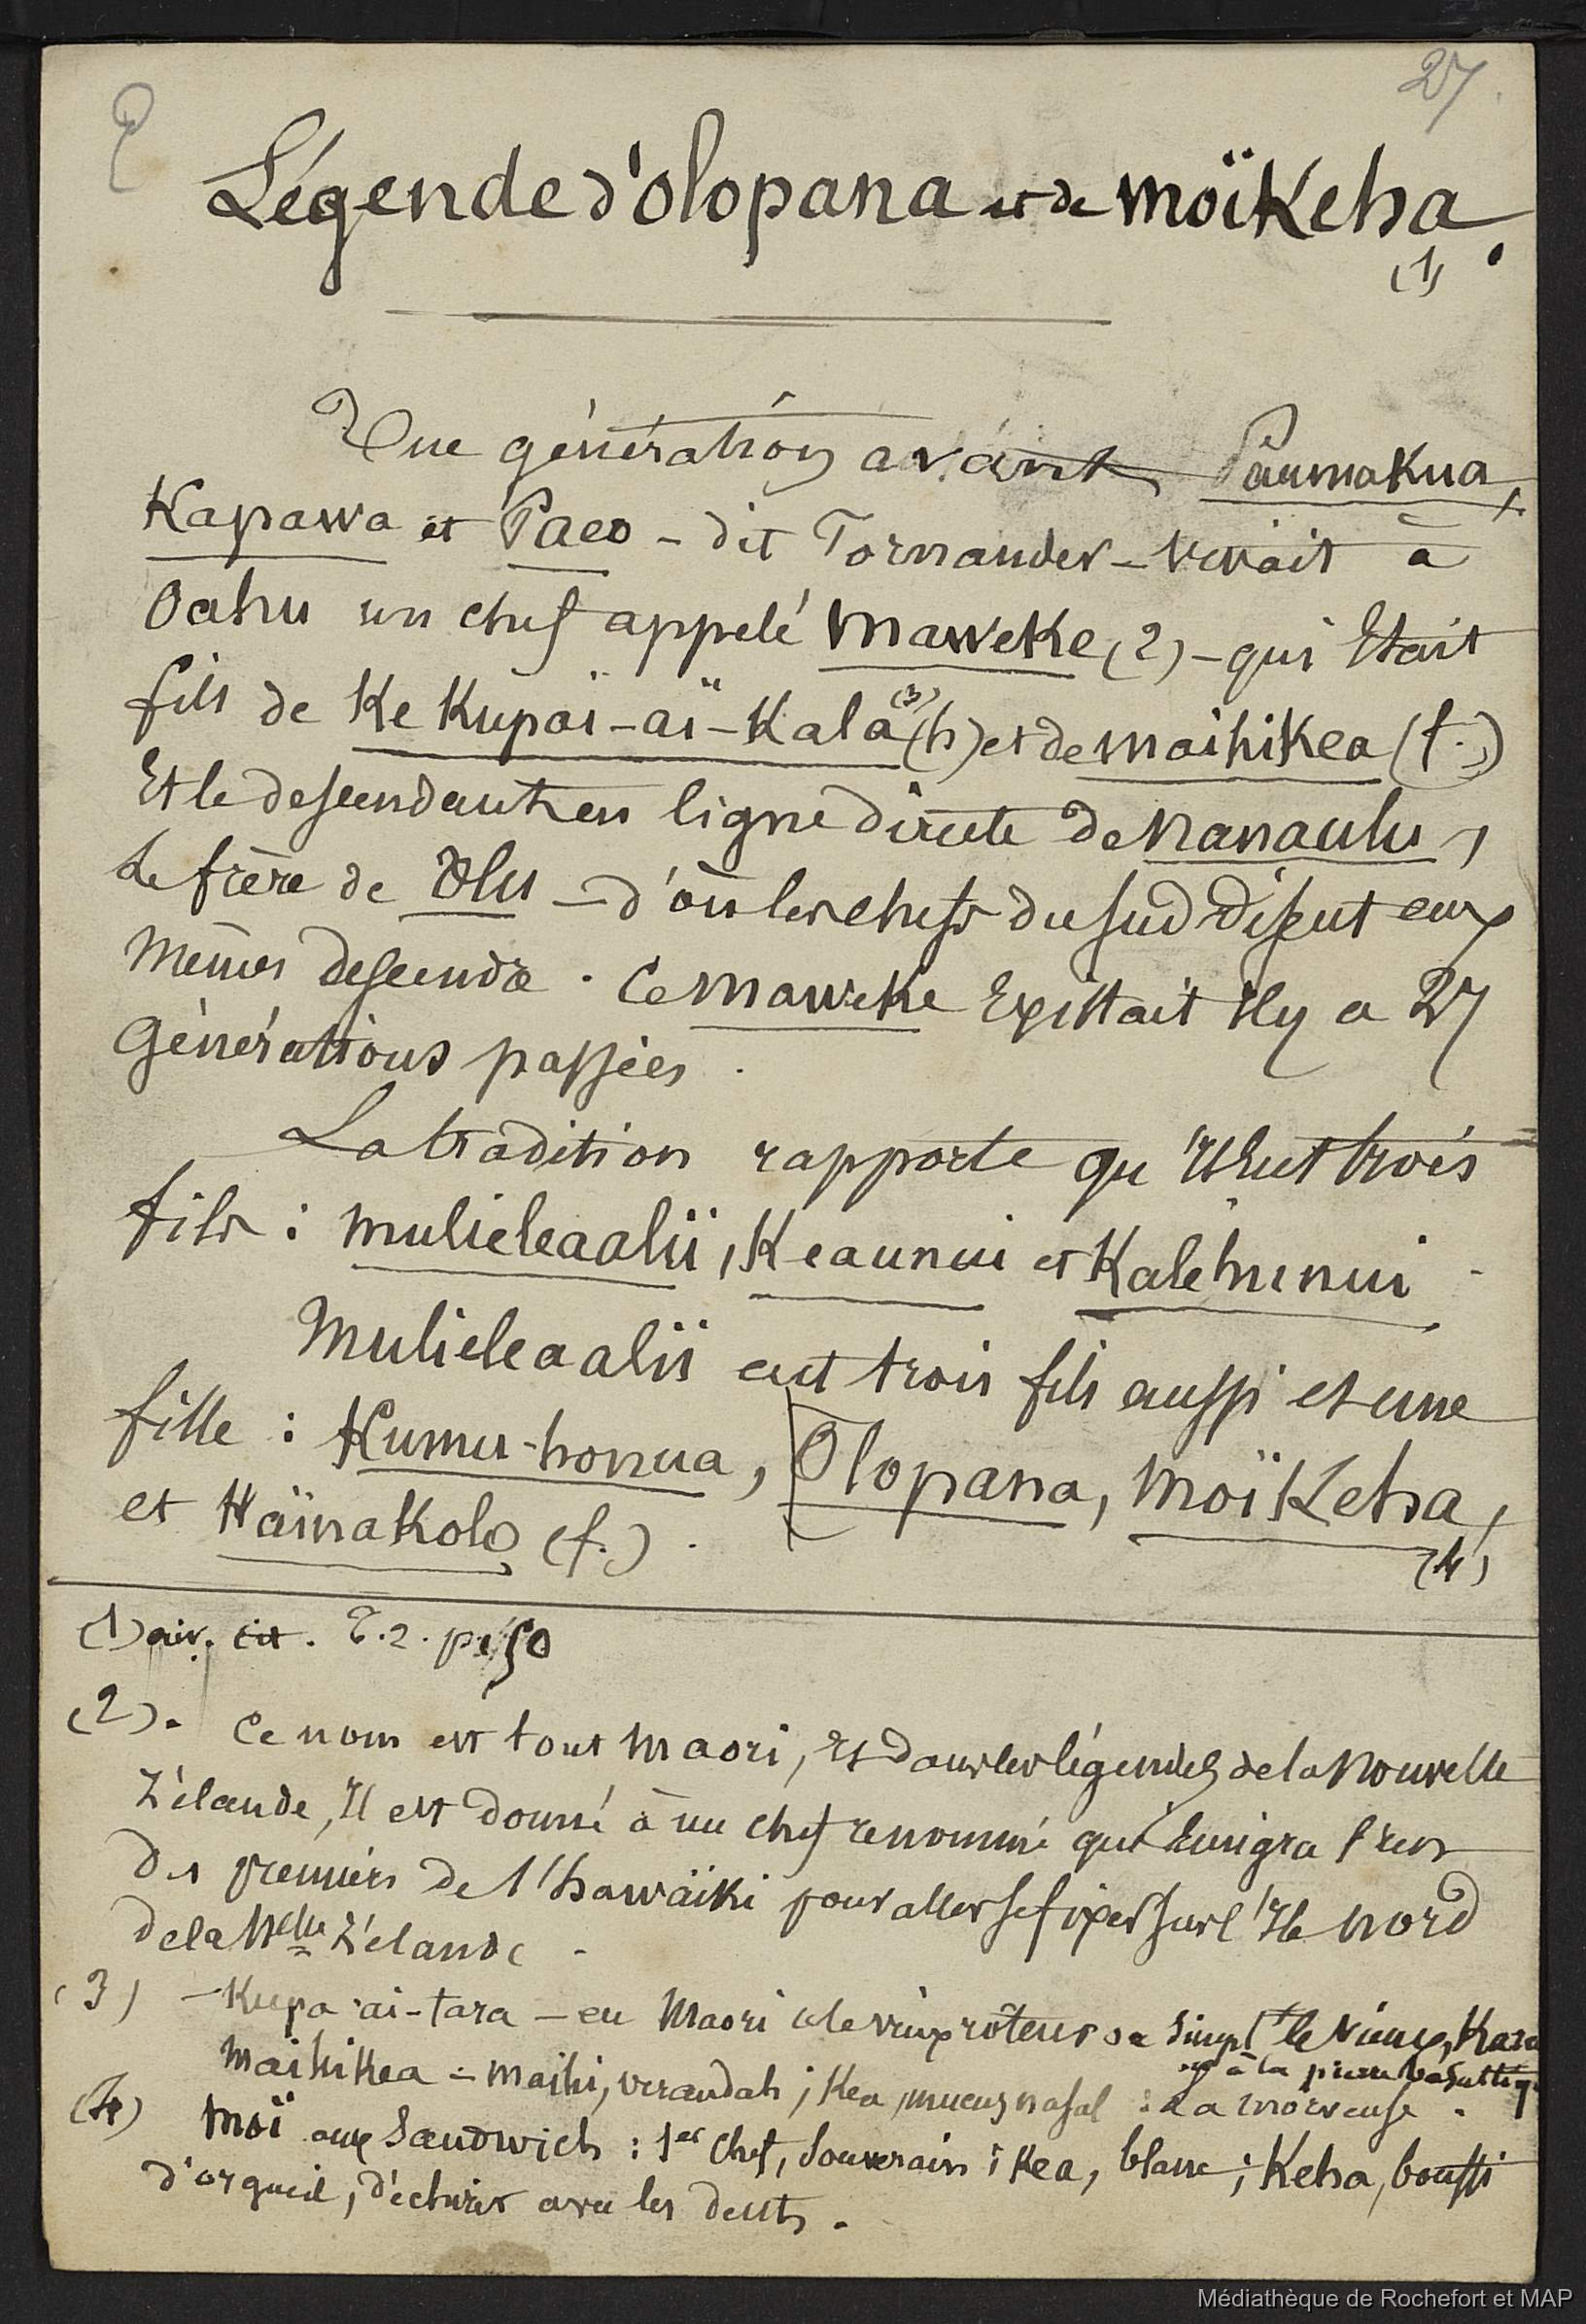 27
Légende d'olopana et de moïkeha.
(1)
Une génération avant Paumakua,
Kapawa et Paeo - dit Fornander - vivait à
Oahu un chef appelé Maweke (2) - qui Etait
fils de Ke Kupaï-aï-Kala (3) (h) et de maihikea (f.)
Et le descendant en ligne directe de Nanaulu,
Le frère de Ulu - d'où les chefs du sud disent eux
mêmes descendre. Ce maweke Existait Il y a 27
Générations passées.
La tradition rapporte qu'Il eut trois
fils : mulieleaalii, Keaunui et Kalehunui.
Mulieleaalii eut trois fils aussi et une
fille : Kumu-honua, Olopana, moïkeha,
(4)
et Haïnakolo (f.).
(1) T.2. p. 50
(2). Ce nom est tout maori, Et dans les légendes de la Nouvelle
Zélande, Il est donné à un chef renommé qui Emigra l'un
des premiers de l'hawaïki pour aller se fixer sur l'Ile nord
de la Nelle Zélande.
(3) - Kupa-ai-tara - en Maori le vieux
à la pierre basaltiq
Maihikea = maihi, verandah ; Kea, mucus nasal : La morveuse.
(4) Moï aux Sandwich : 1er chef, Souverain ; Kea, blanc ; Keha, bouffi
d'orgueil, déchirer avec les dents.
Médiathèque de Rochefort et MAP